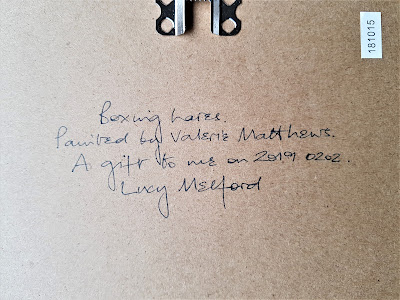 181015
Boxing hares.
Painted by Valerie Matthews.
A gift to me on 2019 0202.
Lucy Melford